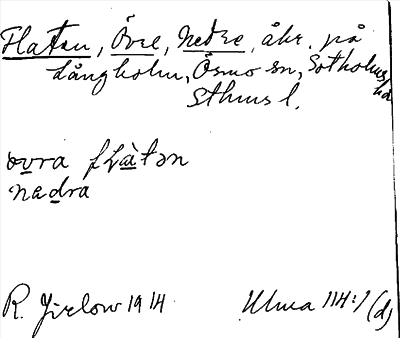 Flaten, Övre, Nedre, åkr. på
Långholm, Ösmo sn, Sotholms hd
Sthms l.
ovra flåtən
nedra
R. Jirlow 1914
Ulma 114:1 (d)